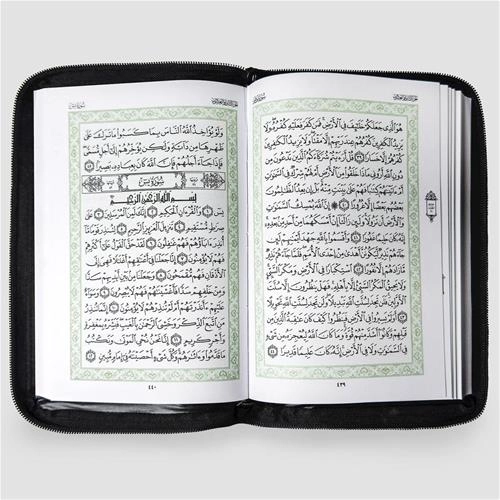 سُورَةُ فَاطِرٍ
هُوَ ٱلَّذِى جَعَلَكُمْ خَلَٰٓئِفَ فِى ٱلْأَرْضِ فَمَن كَفَرَ فَعَلَيْهِ كُفْرُهُۥ وَلَا
يَزِيدُ ٱلْكَٰفِرِينَ كُفْرُهُمْ عِندَ رَبِّهِمْ إِلَّا مَقْتًا وَلَا يَزِيدُ ٱلْكَٰفِرِينَ
كُفْرُهُمْ إِلَّا خَسَارًا ٣٩ قُلْ أَرَءَيْتُمْ شُرَكَآءَكُمُ ٱلَّذِينَ تَدْعُونَ مِن
دُونِ ٱللَّهِ أَرُونِى مَاذَا خَلَقُوا۟ مِنَ ٱلْأَرْضِ أَمْ لَهُمْ شِرْكٌ فِى ٱلسَّمَٰوَٰتِ
أَمْ ءَاتَيْنَٰهُمْ كِتَٰبًا فَهُمْ عَلَىٰ بَيِّنَتٍ مِّنْهُ بَلْ إِن يَعِدُ ٱلظَّٰلِمُونَ
بَعْضُهُم بَعْضًا إِلَّا غُرُورًا ٤٠ إِنَّ ٱللَّهَ يُمْسِكُ ٱلسَّمَٰوَٰتِ
وَٱلْأَرْضَ أَن تَزُولَا وَلَئِن زَالَتَآ إِنْ أَمْسَكَهُمَا مِنْ أَحَدٍ مِّنۢ بَعْدِهِۦٓ
إِنَّهُۥ كَانَ حَلِيمًا غَفُورًا ٤١ وَأَقْسَمُوا۟ بِٱللَّهِ جَهْدَ أَيْمَٰنِهِمْ لَئِن
جَآءَهُمْ نَذِيرٌ لَّيَكُونُنَّ أَهْدَىٰ مِنْ إِحْدَى ٱلْأُمَمِ فَلَمَّا جَآءَهُمْ نَذِيرٌ
مَّا زَادَهُمْ إِلَّا نُفُورًا ٤٢ ٱسْتِكْبَارًا فِى ٱلْأَرْضِ وَمَكْرَ ٱلسَّيِّئِ
وَلَا يَحِيقُ ٱلْمَكْرُ ٱلسَّيِّئُ إِلَّا بِأَهْلِهِۦ فَهَلْ يَنظُرُونَ إِلَّا سُنَّتَ
ٱلْأَوَّلِينَ فَلَن تَجِدَ لِسُنَّتِ ٱللَّهِ تَبْدِيلًا وَلَن تَجِدَ لِسُنَّتِ ٱللَّهِ تَحْوِيلًا
٤٣ أَوَلَمْ يَسِيرُوا۟ فِى ٱلْأَرْضِ فَيَنظُرُوا۟ كَيْفَ كَانَ عَٰقِبَةُ ٱلَّذِينَ مِن
قَبْلِهِمْ وَكَانُوٓا۟ أَشَدَّ مِنْهُمْ قُوَّةً وَمَا كَانَ ٱللَّهُ لِيُعْجِزَهُۥ مِن شَىْءٍ
فِى ٱلسَّمَٰوَٰتِ وَلَا فِى ٱلْأَرْضِ إِنَّهُۥ كَانَ عَلِيمًا قَدِيرًا ٤٤
٤٣٩
سُورَةُ يسٓ
وَلَوْ يُؤَاخِذُ ٱللَّهُ ٱلنَّاسَ بِمَا كَسَبُوا۟ مَا تَرَكَ عَلَىٰ
ظَهْرِهَا مِن دَآبَّةٍ وَلَٰكِن يُؤَخِّرُهُمْ إِلَىٰٓ أَجَلٍ مُّسَمًّى
فَإِذَا جَآءَ أَجَلُهُمْ فَإِنَّ ٱللَّهَ كَانَ بِعِبَادِهِۦ بَصِيرًۢا ٤٥
سُورَةُ يسٓ
بِسْمِ ٱللَّهِ ٱلرَّحْمَٰنِ ٱلرَّحِيمِ
يسٓ ١ وَٱلْقُرْءَانِ ٱلْحَكِيمِ ٢ إِنَّكَ لَمِنَ ٱلْمُرْسَلِينَ ٣ عَلَىٰ
صِرَٰطٍ مُّسْتَقِيمٍ ٤ تَنزِيلَ ٱلْعَزِيزِ ٱلرَّحِيمِ ٥ لِتُنذِرَ قَوْمًا مَّآ
أُنذِرَ ءَابَآؤُهُمْ فَهُمْ غَٰفِلُونَ ٦ لَقَدْ حَقَّ ٱلْقَوْلُ عَلَىٰٓ أَكْثَرِهِمْ
فَهُمْ لَا يُؤْمِنُونَ ٧ إِنَّا جَعَلْنَا فِىٓ أَعْنَٰقِهِمْ أَغْلَٰلًا فَهِىَ إِلَى
ٱلْأَذْقَانِ فَهُم مُّقْمَحُونَ ٨ وَجَعَلْنَا مِنۢ بَيْنِ أَيْدِيهِمْ سَدًّا
وَمِنْ خَلْفِهِمْ سَدًّا فَأَغْشَيْنَٰهُمْ فَهُمْ لَا يُبْصِرُونَ ٩ وَسَوَآءٌ
عَلَيْهِمْ ءَأَنذَرْتَهُمْ أَمْ لَمْ تُنذِرْهُمْ لَا يُؤْمِنُونَ ١٠ إِنَّمَا تُنذِرُ
مَنِ ٱتَّبَعَ ٱلذِّكْرَ وَخَشِىَ ٱلرَّحْمَٰنَ بِٱلْغَيْبِ فَبَشِّرْهُ بِمَغْفِرَةٍ
وَأَجْرٍ كَرِيمٍ ١١ إِنَّا نَحْنُ نُحْىِ ٱلْمَوْتَىٰ وَنَكْتُبُ
مَا قَدَّمُوا۟ وَءَاثَٰرَهُمْ وَكُلَّ شَىْءٍ أَحْصَيْنَٰهُ فِىٓ إِمَامٍ مُّبِينٍ ١٢
٤٤٠